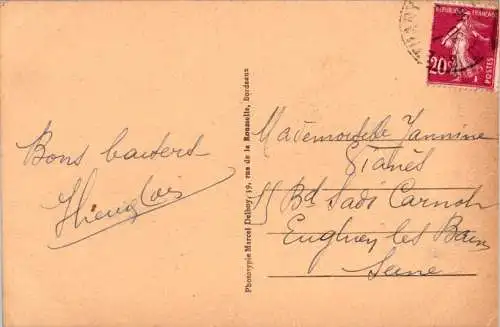 Bons baisers
Phototypie Marcel Delboy, 39, rue de la Rousselle, Bordeaux
REPUBLIQUE FRANÇAISE
20c
POSTES
Mademoiselle Jannine
Bd Sadi Carnot
Enghien les Bains
Seine